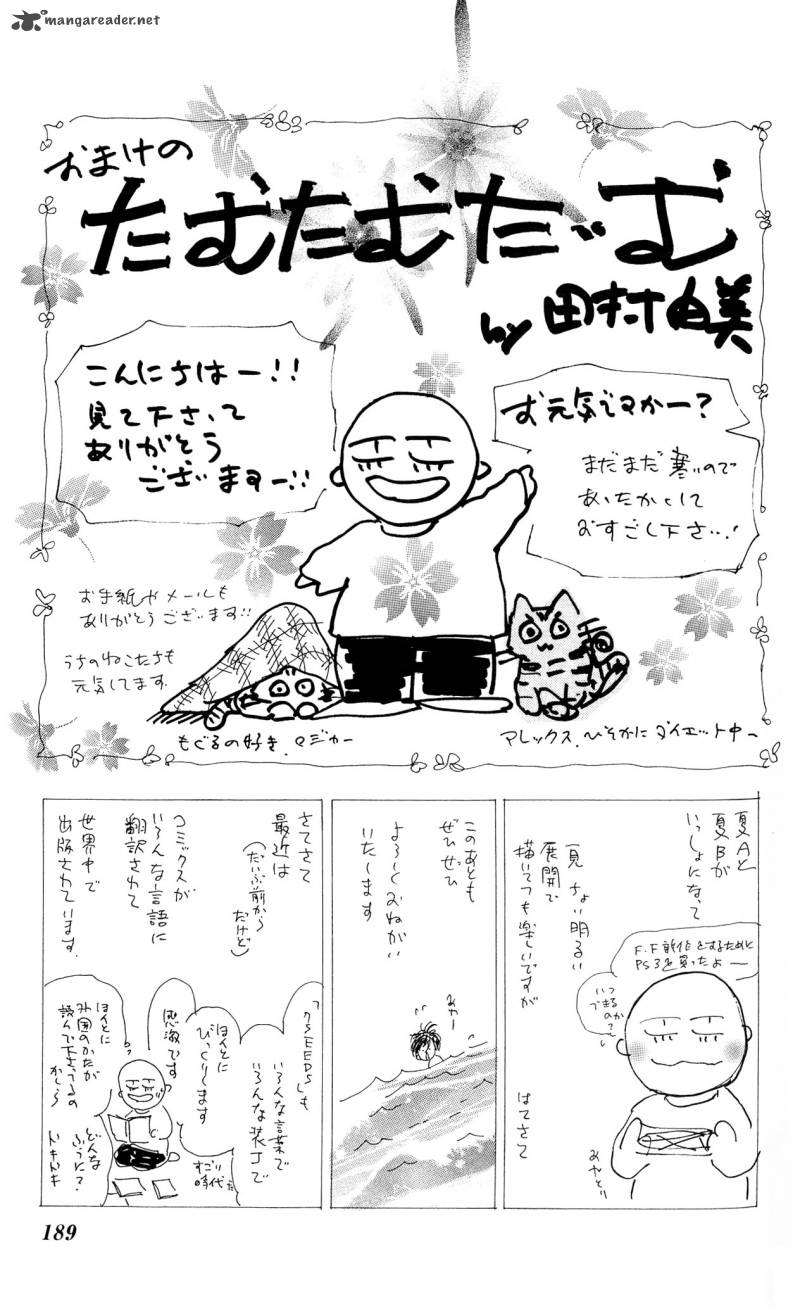 mangareader.net
おまけの
たむたむたいむ
by 田村由美
こんにちはー!!
見て下さって
ありがとう
ございますー!!
お元気ですかー?
まだまだ寒いので
あったかくして
おすごし下さいっ!
お手紙やメールも
ありがとうございます!!
うちのねこたちも
元気してます
もぐるの好き、マジカー
アレックス、ひそかにダイエット中ー
夏Aと
夏Bが
いっしょになって
一見 ちょい明るい
展開で
描いてても楽しいですが
はてさて
F.F新作をするために
PS3を買ったよー
いつ
できるのか?
みやとり
このあとも
ぜひぜひ
よろしくおねがい
いたします
みゃー
さてさて
最近は
(だいぶ前から
だけど)
コミックスが
いろんな言語に
翻訳されて
世界中で
出版されています
「7SEEDS」も
いろんな言葉で
いろんな装丁で
ほんとに
びっくりします
感激です
すごい
時代だ
ほんとに
外国のかたが
読んで下さってるの
かしら
どんな
ふうに?
ドキドキ
189